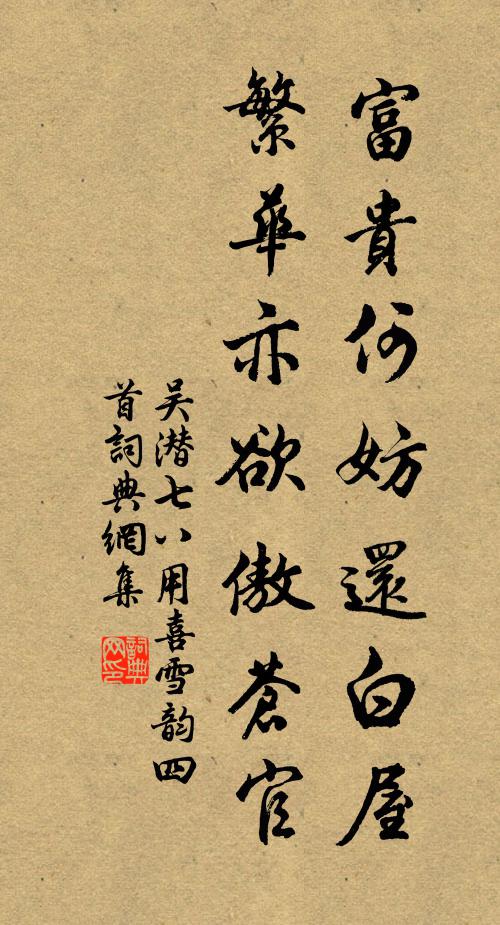 富貴何妨還白屋
繁華亦欲傲蒼官
吴潜七八用喜雪韵四
首詞典網集
詞典
网印